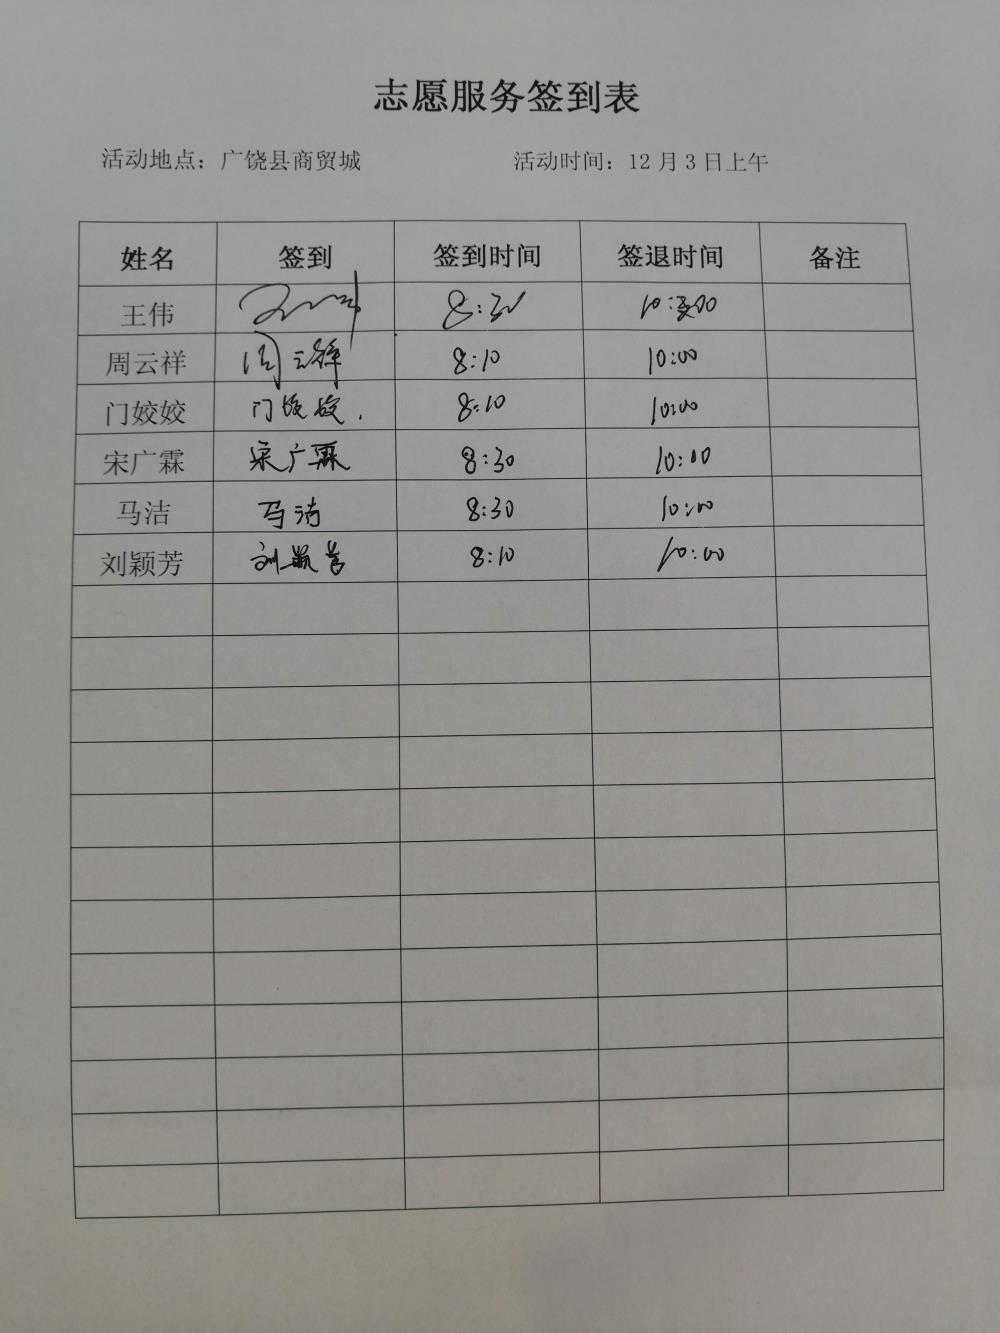 志愿服务签到表
活动地点：广饶县商贸城 活动时间：12月3日上午
姓名 签到 签到时间 签退时间 备注
王伟 王伟 8:30
周云祥 周云祥 8:10 10:00
门姣姣 门姣姣. 8:10 10:00
宋广霖 宋广霖 8:30 10:00
马洁 马洁 8:30 10:00
刘颖芳 刘颖芳 8:10 10:00